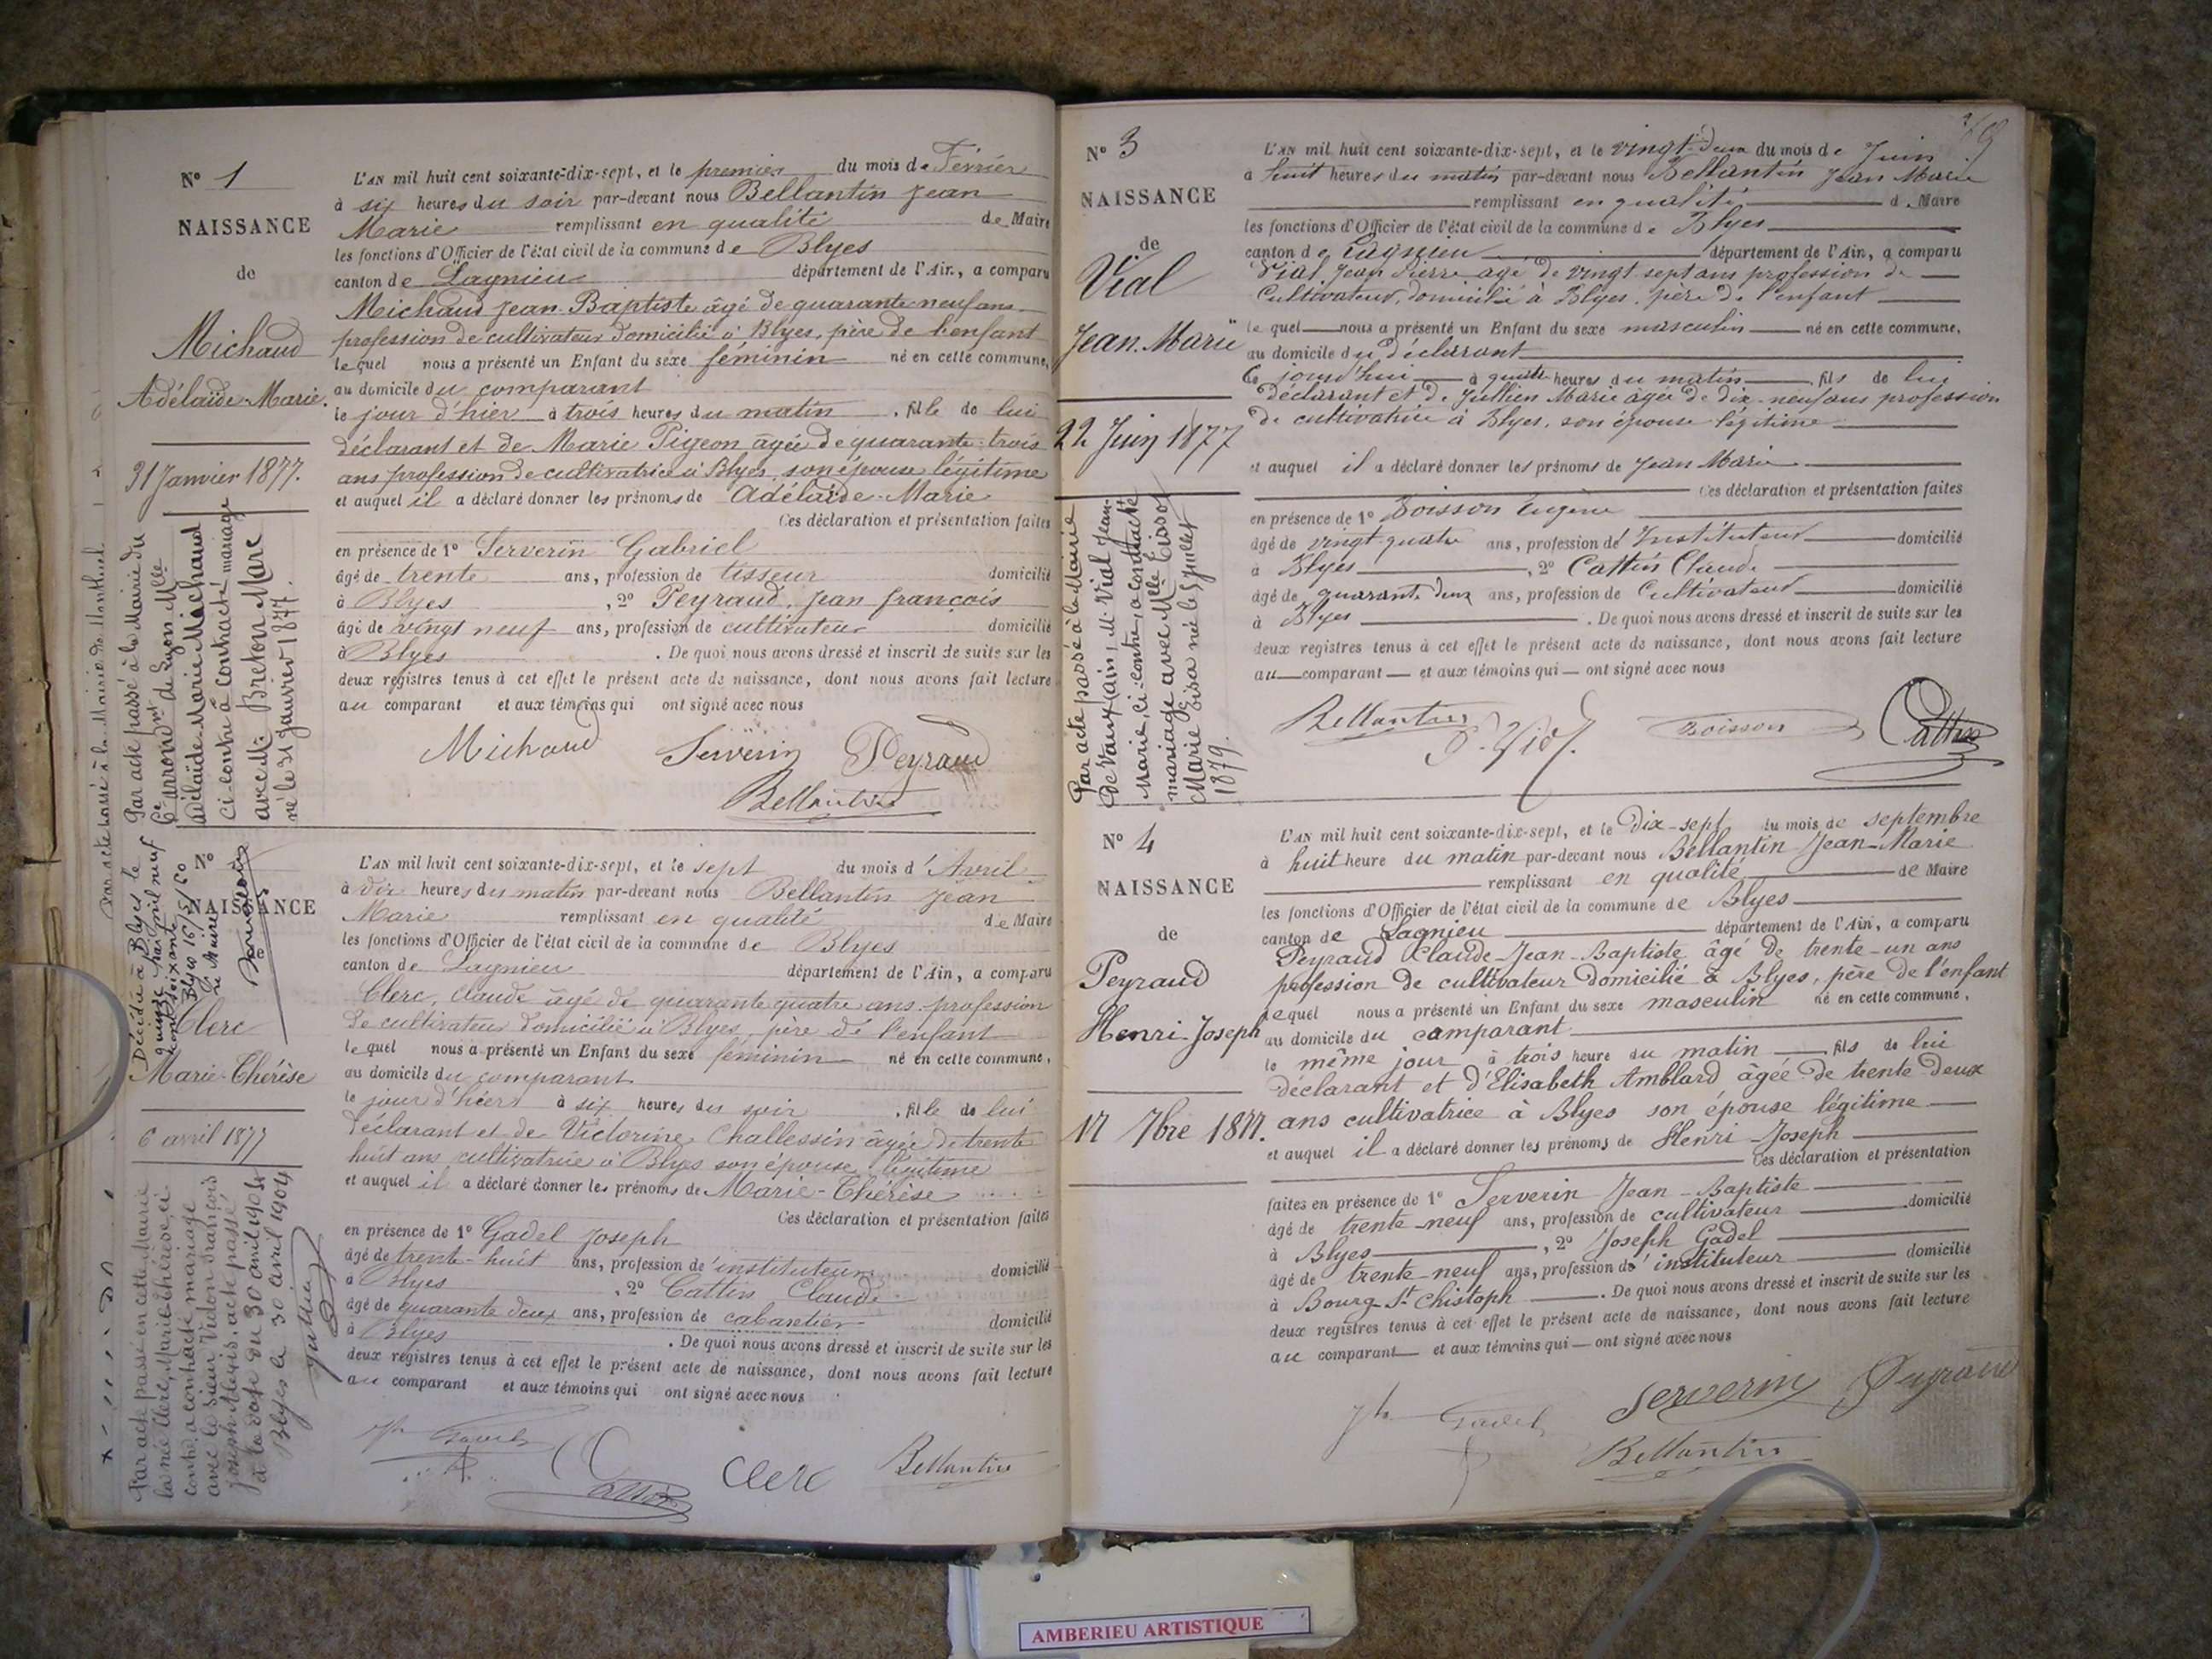 N° 1
NAISSANCE
de
Michaud
Adélaïde-Marie.
31 Janvier 1877.
Par acte passé à la Mairie du
6e arrondnt de Lyon Melle
Adélaïde Marie Michaud
ci-contre à contracté mariage
avec M. Breton Marc
né le 31 janvier 1877.
L'AN mil huit cent soixante-dix-sept, et le premier du mois de Février
à six heures du soir par-devant nous Bellantin Jean
Marie remplissant en qualité de Maire
les fonctions d'Officier de l'état civil de la commune de Blyes
canton de Lagnieu département de l'Ain, a comparu
Michaud Jean-Baptiste âgé de quarante-neuf ans
profession de cultivateur domicilié à Blyes, père de l'enfant
lequel nous a présenté un Enfant du sexe féminin né en cette commune,
au domicile du comparant
le jour d'hier à trois heures du matin, fille de lui
déclarant et de Marie Pigeon âgée de quarante-trois
ans profession de cultivatrice à Blyes, son épouse légitime
et auquel il a déclaré donner les prénoms de Adélaïde-Marie
Ces déclaration et présentation faites
en présence de 1° Serverin Gabriel
âgé de trente ans, profession de tisseur domicilié
à Blyes, 2° Peyraud, Jean François
âgé de vingt neuf ans, profession de cultivateur domicilié
à Blyes. De quoi nous avons dressé et inscrit de suite sur les
deux registres tenus à cet effet le présent acte de naissance, dont nous avons fait lecture
au comparant et aux témoins qui ont signé avec nous
Michaud Serverin Peyraud
Bellantin
Par acte passé à la Mairie de Montluel
N°
NAISSANCE
Décédée à Blyes le
quinze mai mil neuf
cent soixante
Blyes 16/5/60
Le Maire
Clerc
Marie-Thérèse
6 avril 1877
Par acte passé en cette Mairie
la née Clerc, Marie-Thérèse, ci-
contre a contracté mariage
avec le sieur Vuidon François
Joseph Alexis, acte passé
à la date du 30 avril 1904
Blyes le 30 avril 1904
L'AN mil huit cent soixante-dix-sept, et le sept du mois d'Avril
à dix heures du matin par-devant nous Bellantin Jean
Marie remplissant en qualité de Maire
les fonctions d'Officier de l'état civil de la commune de Blyes
canton de Lagnieu département de l'Ain, a comparu
Clerc, Claude âgé de quarante quatre ans profession
de cultivateur domicilié à Blyes, père de l'enfant
lequel nous a présenté un Enfant du sexe féminin né en cette commune,
au domicile du comparant
le jour d'hier à six heures du soir, fille de lui
déclarant et de Victorine Challessin âgée de trente
huit ans cultivatrice à Blyes son épouse légitime
et auquel il a déclaré donner les prénoms de Marie-Thérèse
Ces déclaration et présentation faites
en présence de 1° Gadel Joseph
âgé de trente-huit ans, profession d'instituteur domicilié
à Blyes, 2° Cattin Claude
âgé de quarante deux ans, profession de cabaretier domicilié
à Blyes. De quoi nous avons dressé et inscrit de suite sur les
deux registres tenus à cet effet le présent acte de naissance, dont nous avons fait lecture
au comparant et aux témoins qui ont signé avec nous
Jh Gadel Cattin Clerc Bellantin
N° 3
NAISSANCE
de
Vial
Jean-Marie
22 Juin 1877
Par acte passé à la Mairie
de Vaux (ain) M. Vial Jean-
Marie, ci-contre, a contracté
mariage avec Melle Tissot
Marie Elisa née le 5 juillet
1879.
L'AN mil huit cent soixante-dix-sept, et le vingt-deux du mois de Juin
à huit heures du matin par-devant nous Bellantin Jean Marie
remplissant en qualité de Maire
les fonctions d'Officier de l'état civil de la commune de Blyes
canton de Lagnieu département de l'Ain, a comparu
Vial Jean Pierre âgé de vingt sept ans profession de
Cultivateur, domicilié à Blyes, père de l'enfant
lequel nous a présenté un Enfant du sexe masculin né en cette commune,
au domicile du déclarant
Ce jourd'hui à quatre heures du matin, fils de lui
déclarant et de Jullien Marie âgée de dix-neuf ans profession
de cultivatrice à Blyes, son épouse légitime
et auquel il a déclaré donner les prénoms de Jean Marie
Ces déclaration et présentation faites
en présence de 1° Boisson Eugène
âgé de vingt quatre ans, profession d'Instituteur domicilié
à Blyes, 2° Cattin Claude
âgé de quarante deux ans, profession de Cultivateur domicilié
à Blyes. De quoi nous avons dressé et inscrit de suite sur les
deux registres tenus à cet effet le présent acte de naissance, dont nous avons fait lecture
au comparant et aux témoins qui ont signé avec nous
Bellantin Boisson Cattin
N° 4
NAISSANCE
de
Peyraud
Henri-Joseph
17 7bre 1877.
L'AN mil huit cent soixante-dix-sept, et le Dix-sept du mois de septembre
à huit heure du matin par-devant nous Bellantin Jean-Marie
remplissant en qualité de Maire
les fonctions d'Officier de l'état civil de la commune de Blyes
canton de Lagnieu département de l'Ain, a comparu
Peyraud Claude-Jean-Baptiste âgé de trente-un ans
profession de cultivateur domicilié à Blyes, père de l'enfant
lequel nous a présenté un Enfant du sexe masculin né en cette commune,
au domicile du comparant
le même jour à trois heure du matin fils de lui
déclarant et d'Elisabeth Amblard âgée de trente-deux
ans cultivatrice à Blyes son épouse légitime
et auquel il a déclaré donner les prénoms de Henri-Joseph
Ces déclaration et présentation
faites en présence de 1° Serverin Jean-Baptiste
âgé de trente-neuf ans, profession de cultivateur domicilié
à Blyes, 2° Joseph Gadel
âgé de trente-neuf ans, profession d'instituteur domicilié
à Bourg-St Chistoph. De quoi nous avons dressé et inscrit de suite sur les
deux registres tenus à cet effet le présent acte de naissance, dont nous avons fait lecture
au comparant et aux témoins qui ont signé avec nous
Jh Gadel Serverin Peyraud
Bellantin
AMBERIEU ARTISTIQUE